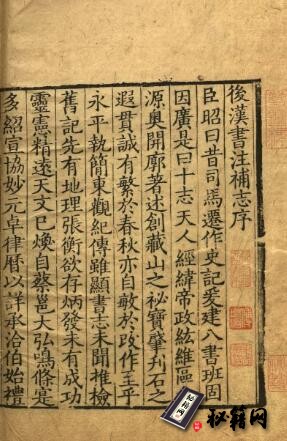 後漢書注補志序
臣昭曰昔司馬遷作史記爰建八書班固
因廣是曰十志天人經緯帝政紘維區
源奧開廓著述創藏山之祕寶肇刊石之
遐貫誠有繁於春秋亦自敏於改作至乎
永平執簡東觀紀傳雖顯書志未聞推檢
舊記先有地理張衡欲存炳發未有成功
靈憲精遠天文已煥自蔡邕大弘鳴條寔
多紹宣協妙元卓律曆以詳承洽伯始禮
秘籍网